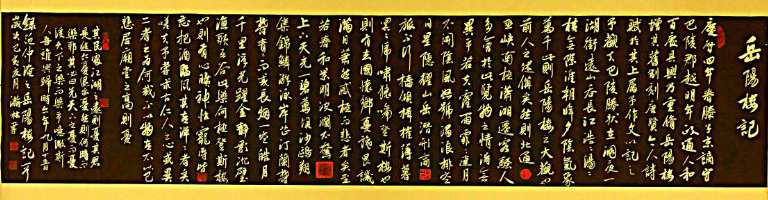 岳陽樓記
慶曆四年春滕子京謫守
巴陵郡越明年政通人和
百廢具興乃重修岳陽樓
增其舊制刻唐賢今人詩
賦於其上屬予作文以記之
予觀夫巴陵勝狀在洞庭一
湖銜遠山吞長江浩浩湯湯
橫無際涯朝暉夕陰氣象
萬千此則岳陽樓之大觀也
前人之述備矣然則北通
巫峽南極瀟湘遷客騷人
多會於此覽物之情得無
異乎若夫霪雨霏霏連月
不開陰風怒號濁浪排空
日星隱曜山岳潛形商
旅不行檣傾楫摧薄暮
冥冥虎嘯猿啼登斯樓也
則有去國懷鄉憂讒畏譏
滿目蕭然感極而悲者矣至
若春和景明波瀾不驚
上下天光一碧萬頃沙鷗翔
集錦鱗游泳岸芷汀蘭郁
郁青青而或長煙一空皓月
千里浮光躍金靜影沉璧
漁歌互答此樂何極登斯樓
也則有心曠神怡寵辱皆
忘把酒臨風其喜洋洋者矣
嗟夫予嘗求古仁人之心或異
二者之為何哉不以物喜不以己
悲居廟堂之高則憂
其民處江湖之遠則憂其君
是進亦憂退亦憂然則何時而
樂耶其必曰先天下之憂而憂
後天下之樂而樂乎噫微斯
人吾誰與歸時六年九月十五日
錄范仲淹之岳陽樓記